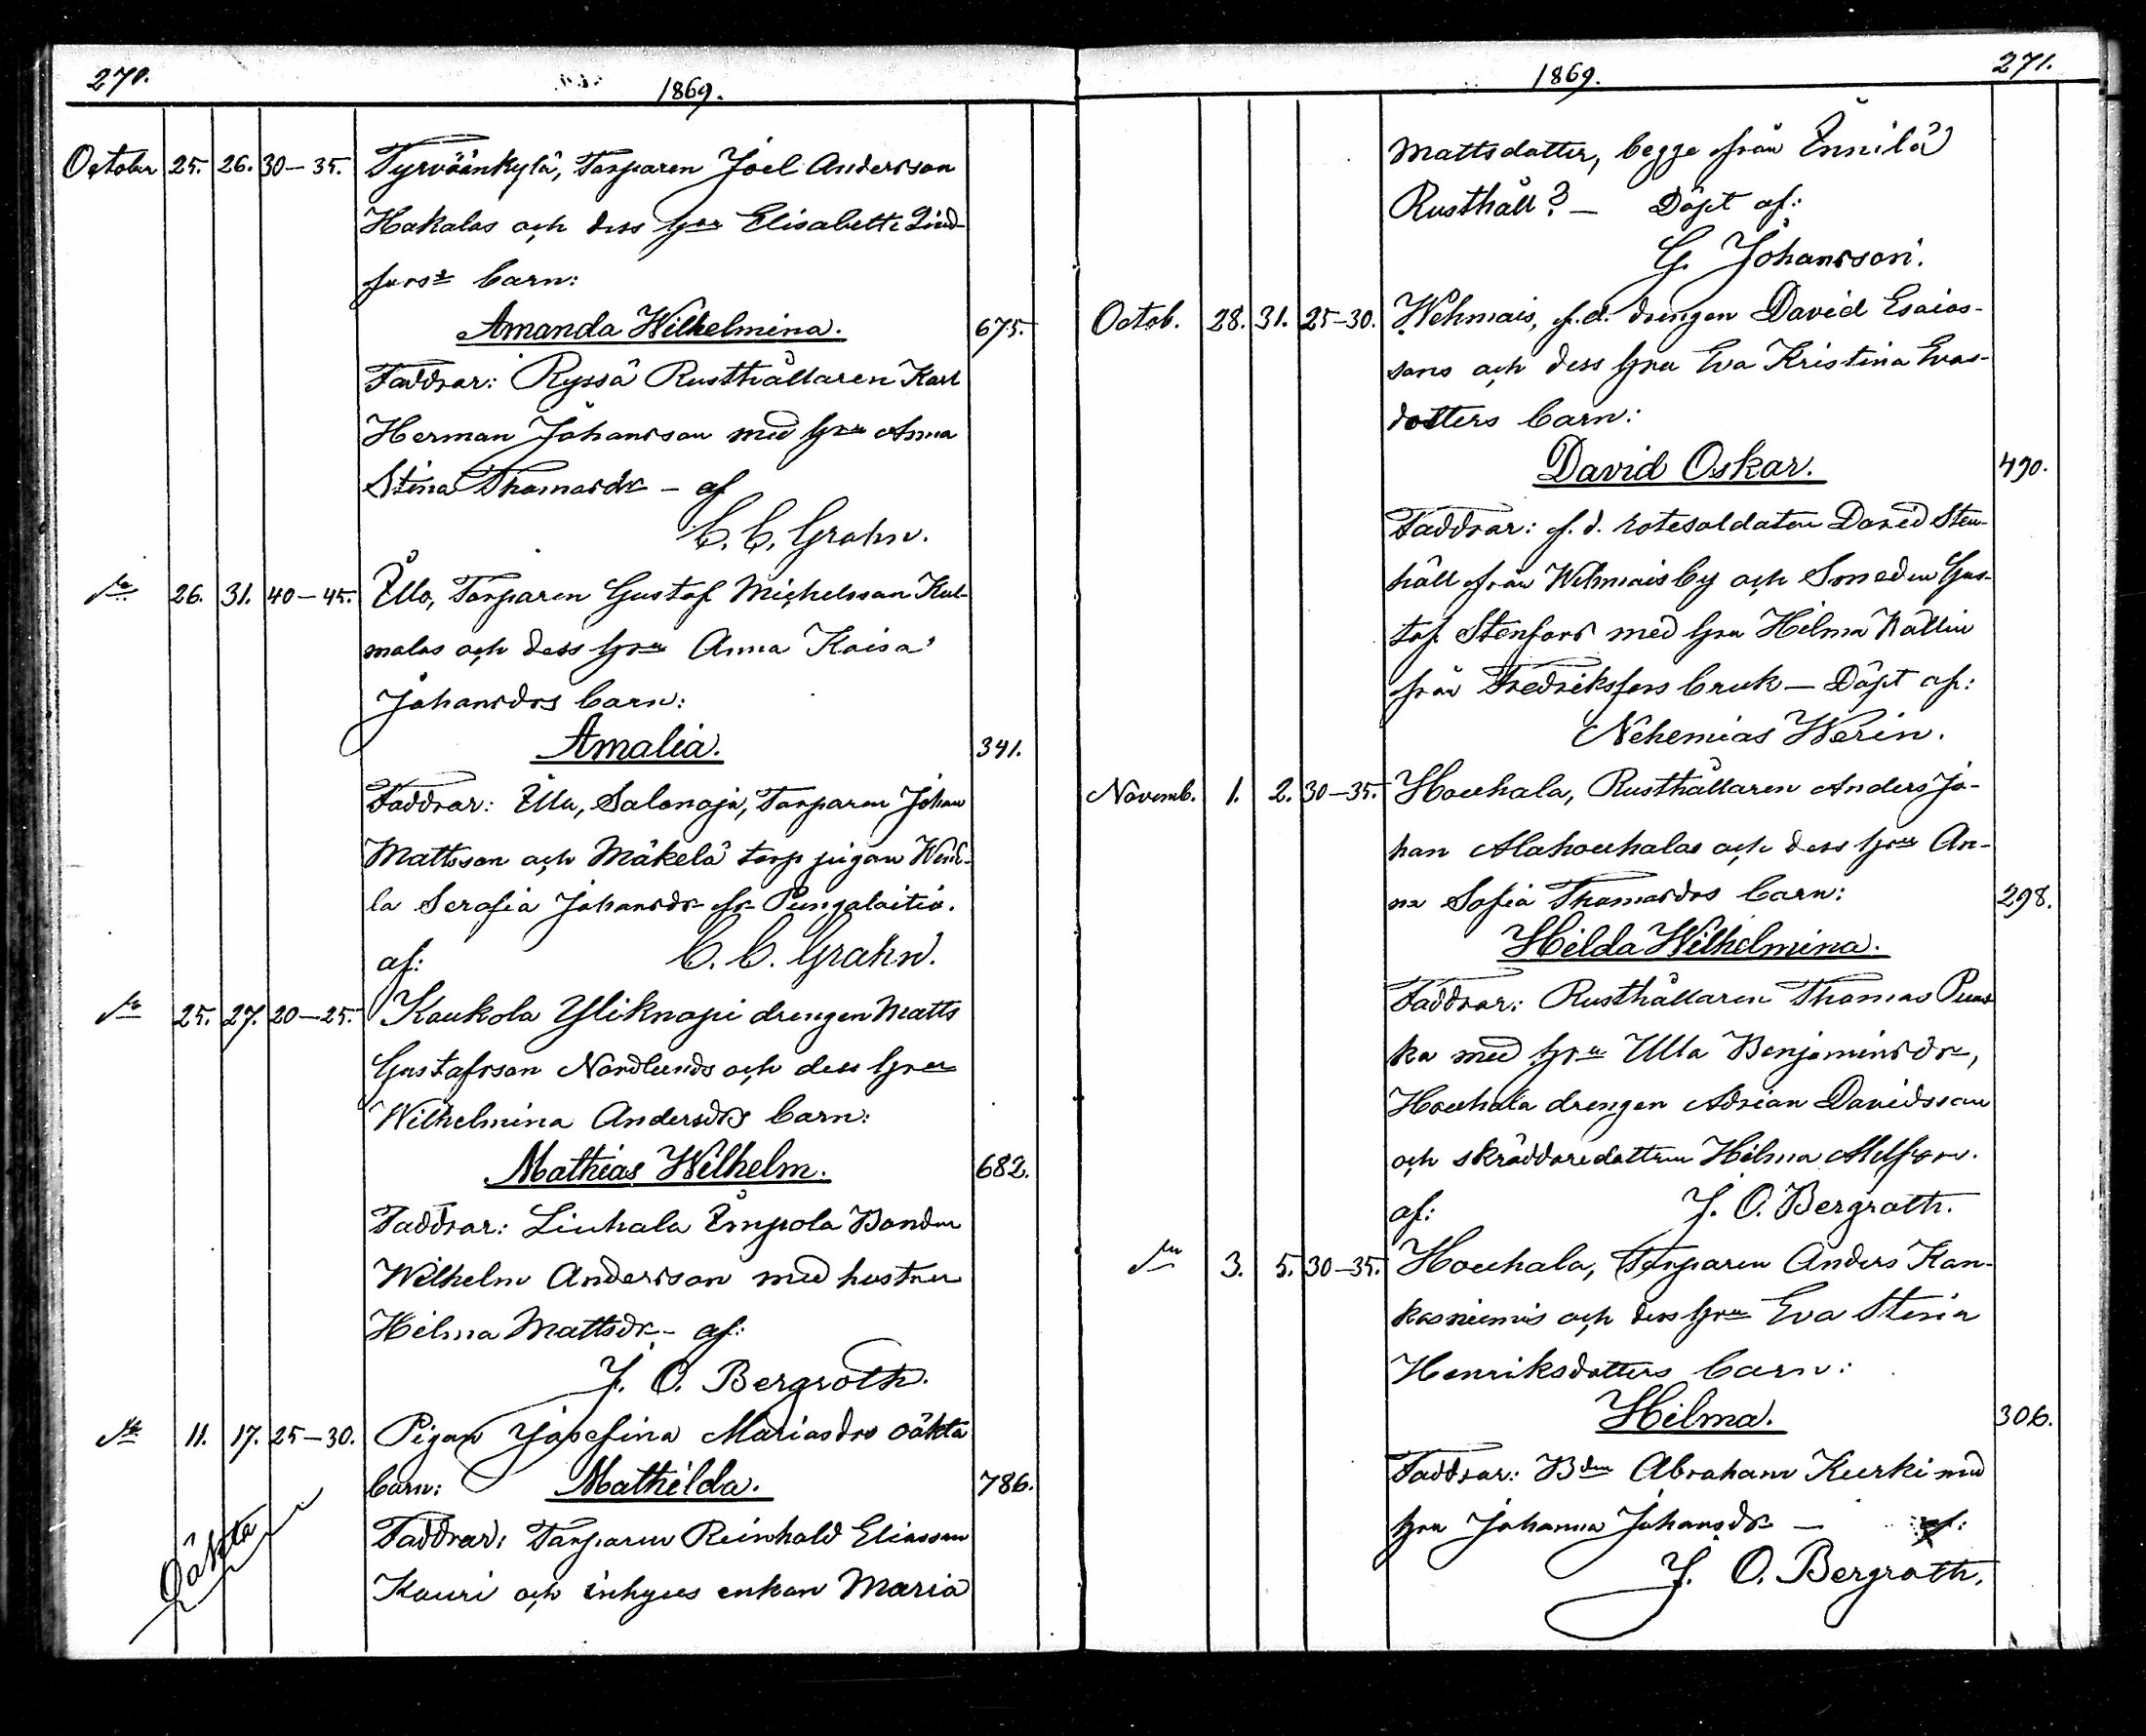 270.
1869.
October 25. 26. 30–35. Tyrväänkylä, Torparen Joel Andersson
Hakalas och dess hru Elisabeth Lind-
fors's barn:
Amanda Wilhelmina. 675.
Faddrar: Ryssä Rusthållaren Karl
Herman Johansson med hru Anna
Stina Thomasdr – af
C. C. Grahn.
do 26. 31. 40–45. Ullo, Torparen Gustaf Michelsson Kul-
malas och dess hru Anna Kaisa
Johansdrs barn:
Amalia. 341.
Faddrar: Ulla, Salonoja, Torparen Johan
Mattsson och Mäkelä torp pigan Wend-
la Serafia Johansdr fr Pungalaitio.
af: C. C. Grahn.
do 25. 27. 20–25. Koukola Yliknapi drengen Matts
Gustafsson Nordlunds och dess hru
Wilhelmina Andersdrs barn:
Mathias Wilhelm. 682.
Faddrar: Liuhala Empola Bonden
Wilhelm Andersson med hustru
Hilma Mattsdr – af:
J. O. Bergroth.
do 11. 17. 25–30. Pigan Josefina Mariasdrs oäkta
barn: Mathilda. 786.
Oäkta
Faddrar: Torparen Reinhold Eliasson
Kauri och inhyses enkan Maria
271.
1869.
Mattsdotter, begge från Ennilä
Rusthåll? – Döpt af:
G. Johansson.
Octob. 28. 31. 25–30. Wehmais, f.d. drengen David Esaias-
sons och dess hru Eva Kristina Evas-
dotters barn:
David Oskar. 490.
Faddrar: f.d. rotesoldaten David Sten-
häll från Wehmais by och Smeden Gus-
taf Stenfors med hru Hilma Wallin
från Fredriksfors bruk – Döpt af:
Nehemias Werin.
Novemb. 1. 2. 30–35. Houhala, Rusthållaren Anders Jo-
han Alahouhalas och dess hru An-
na Sofia Thomasdrs barn: 298.
Hilda Wilhelmina.
Faddrar: Rusthållaren Thomas Puus-
ka med hru Ulla Benjaminsdr,
Houhala drengen Adrian Davidsson
och skräddaredottren Hilma
af: J. O. Bergroth.
do 3. 5. 30–35. Houhala, Torparen Anders Kan-
kasniemis och dess hru Eva Stina
Henriksdotters barn:
Hilma. 306.
Faddrar: Bden Abraham Kurki med
hru Johanna Johansdr – af:
J. O. Bergroth.